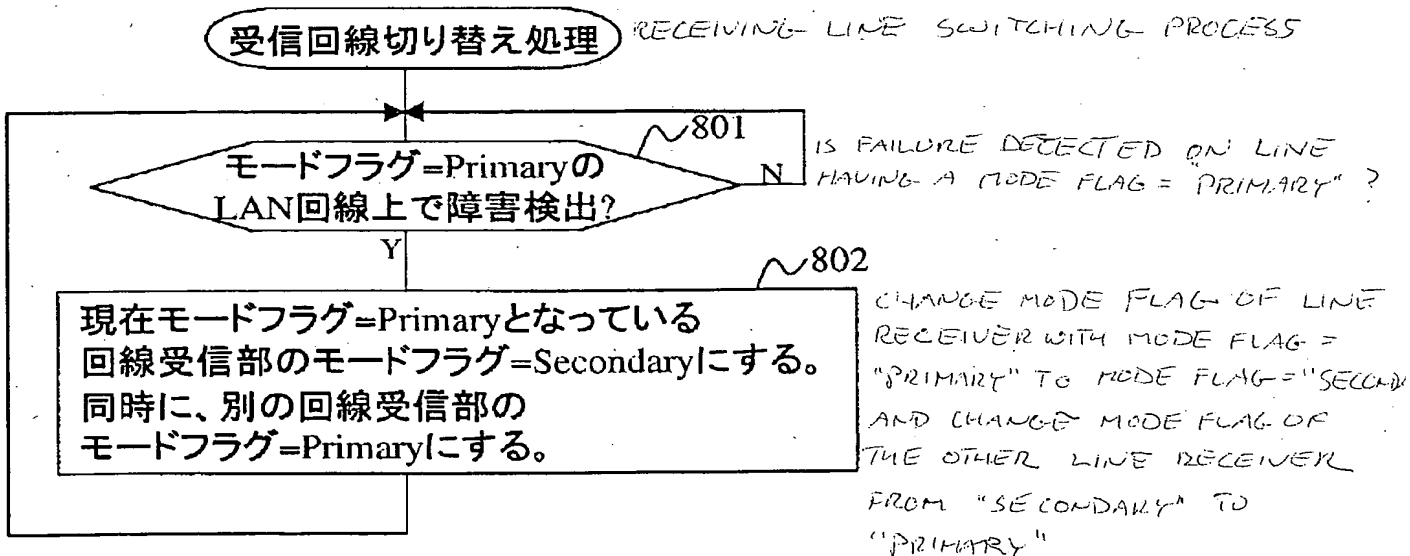 受信回線切り替え処理
RECEIVING LINE SWITCHING PROCESS
801
モードフラグ=Primaryの
LAN回線上で障害検出?
N
Y
IS FAILURE DETECTED ON LINE
HAVING A MODE FLAG = "PRIMARY" ?
802
現在モードフラグ=Primaryとなっている
回線受信部のモードフラグ=Secondaryにする。
同時に、別の回線受信部の
モードフラグ=Primaryにする。
CHANGE MODE FLAG OF LINE
RECEIVER WITH MODE FLAG =
"PRIMARY" TO MODE FLAG = "SECONDA
AND CHANGE MODE FLAG OF
THE OTHER LINE RECEIVER
FROM "SECONDARY" TO
"PRIMARY"